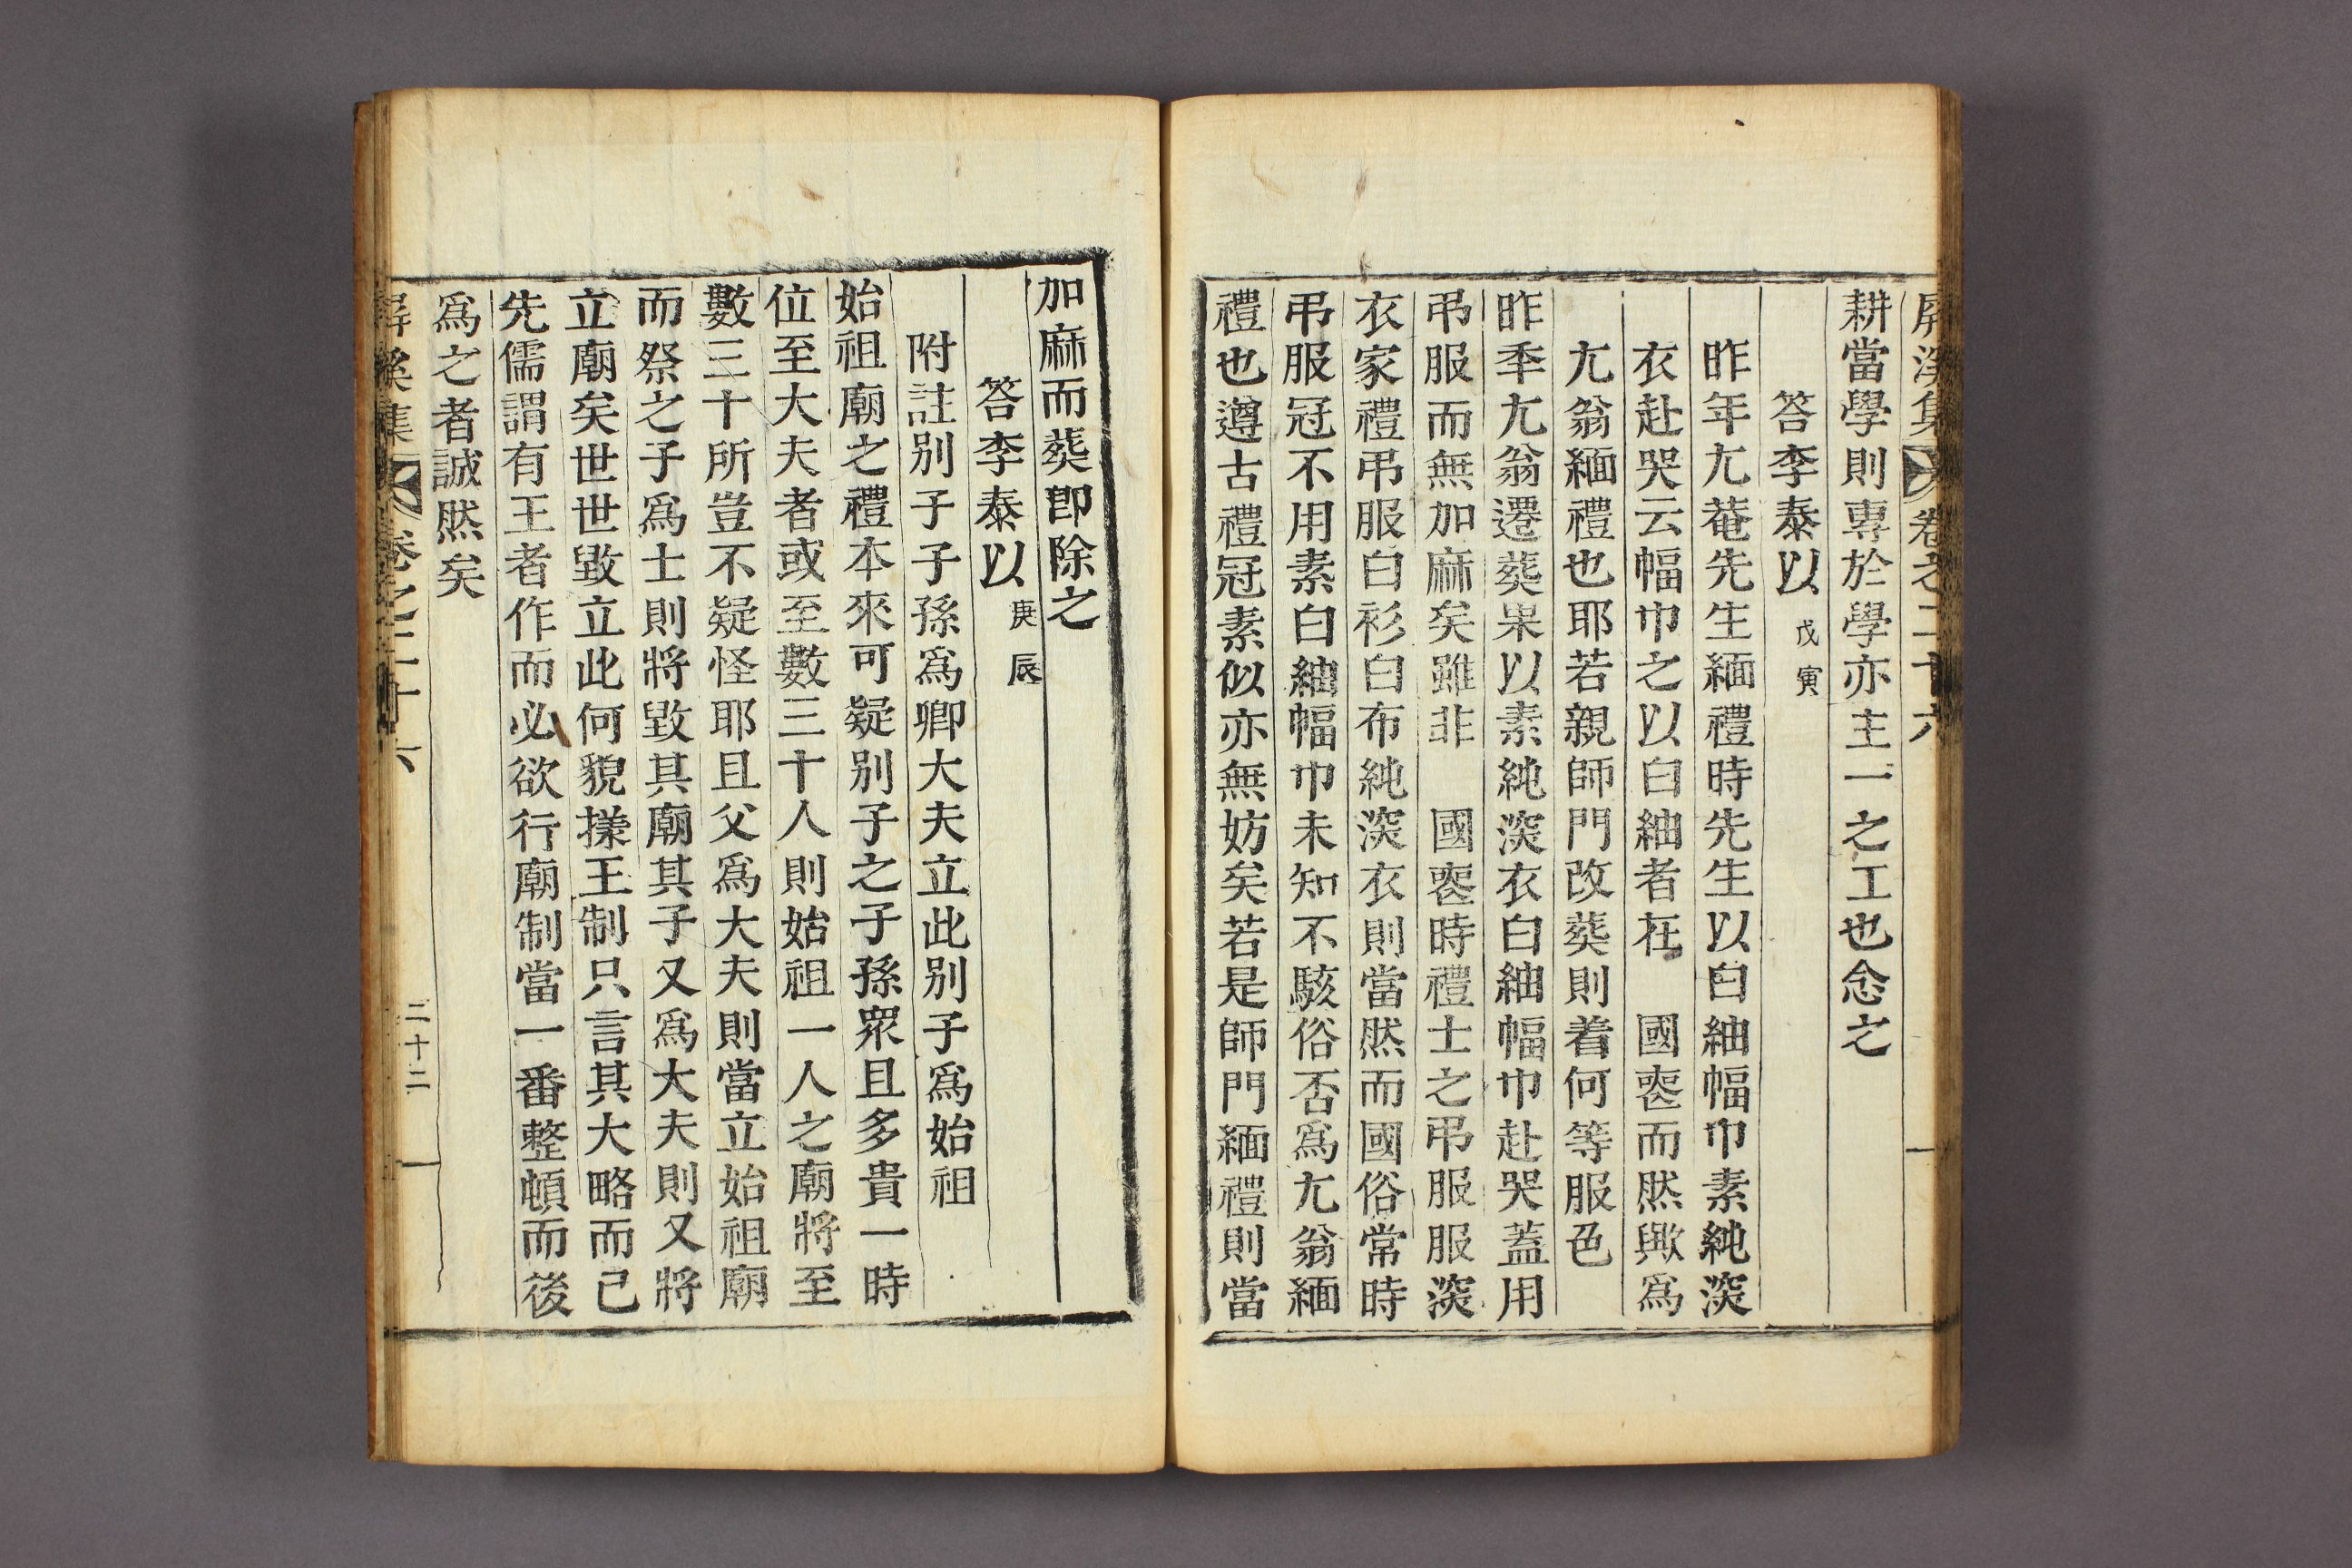 屛溪集 卷之二十六
耕當學則專於學亦主一之工也念之
答李泰以 戊寅
昨年尤菴先生緬禮時先生以白紬幅巾素純深
衣赴哭云幅巾之以白紬者在 國喪而然歟爲
尤翁緬禮也耶若親師門改葬則着何等服色
昨秊尤翁遷葬果以素純深衣白紬幅巾赴哭蓋用
弔服而無加麻矣雖非 國喪時禮士之弔服服深
衣家禮弔服白衫白布純深衣則當然而國俗常時
弔服冠不用素白紬幅巾未知不駭俗否爲尤翁緬
禮也遵古禮冠素似亦無妨矣若是師門緬禮則當
加麻而葬卽除之
答李泰以 庚辰
附註別子子孫爲卿大夫立此別子爲始祖
始祖廟之禮本來可疑別子之子孫衆且多貴一時
位至大夫者或至數三十人則始祖一人之廟將至
數三十所豈不疑怪耶且父爲大夫則當立始祖廟
而祭之子爲士則將毀其廟其子又爲大夫則又將
立廟矣世世毀立此何貌㨾王制只言其大略而已
先儒謂有王者作而必欲行廟制當一番整頓而後
爲之者誠然矣
屛溪集 卷之二十六 二十二